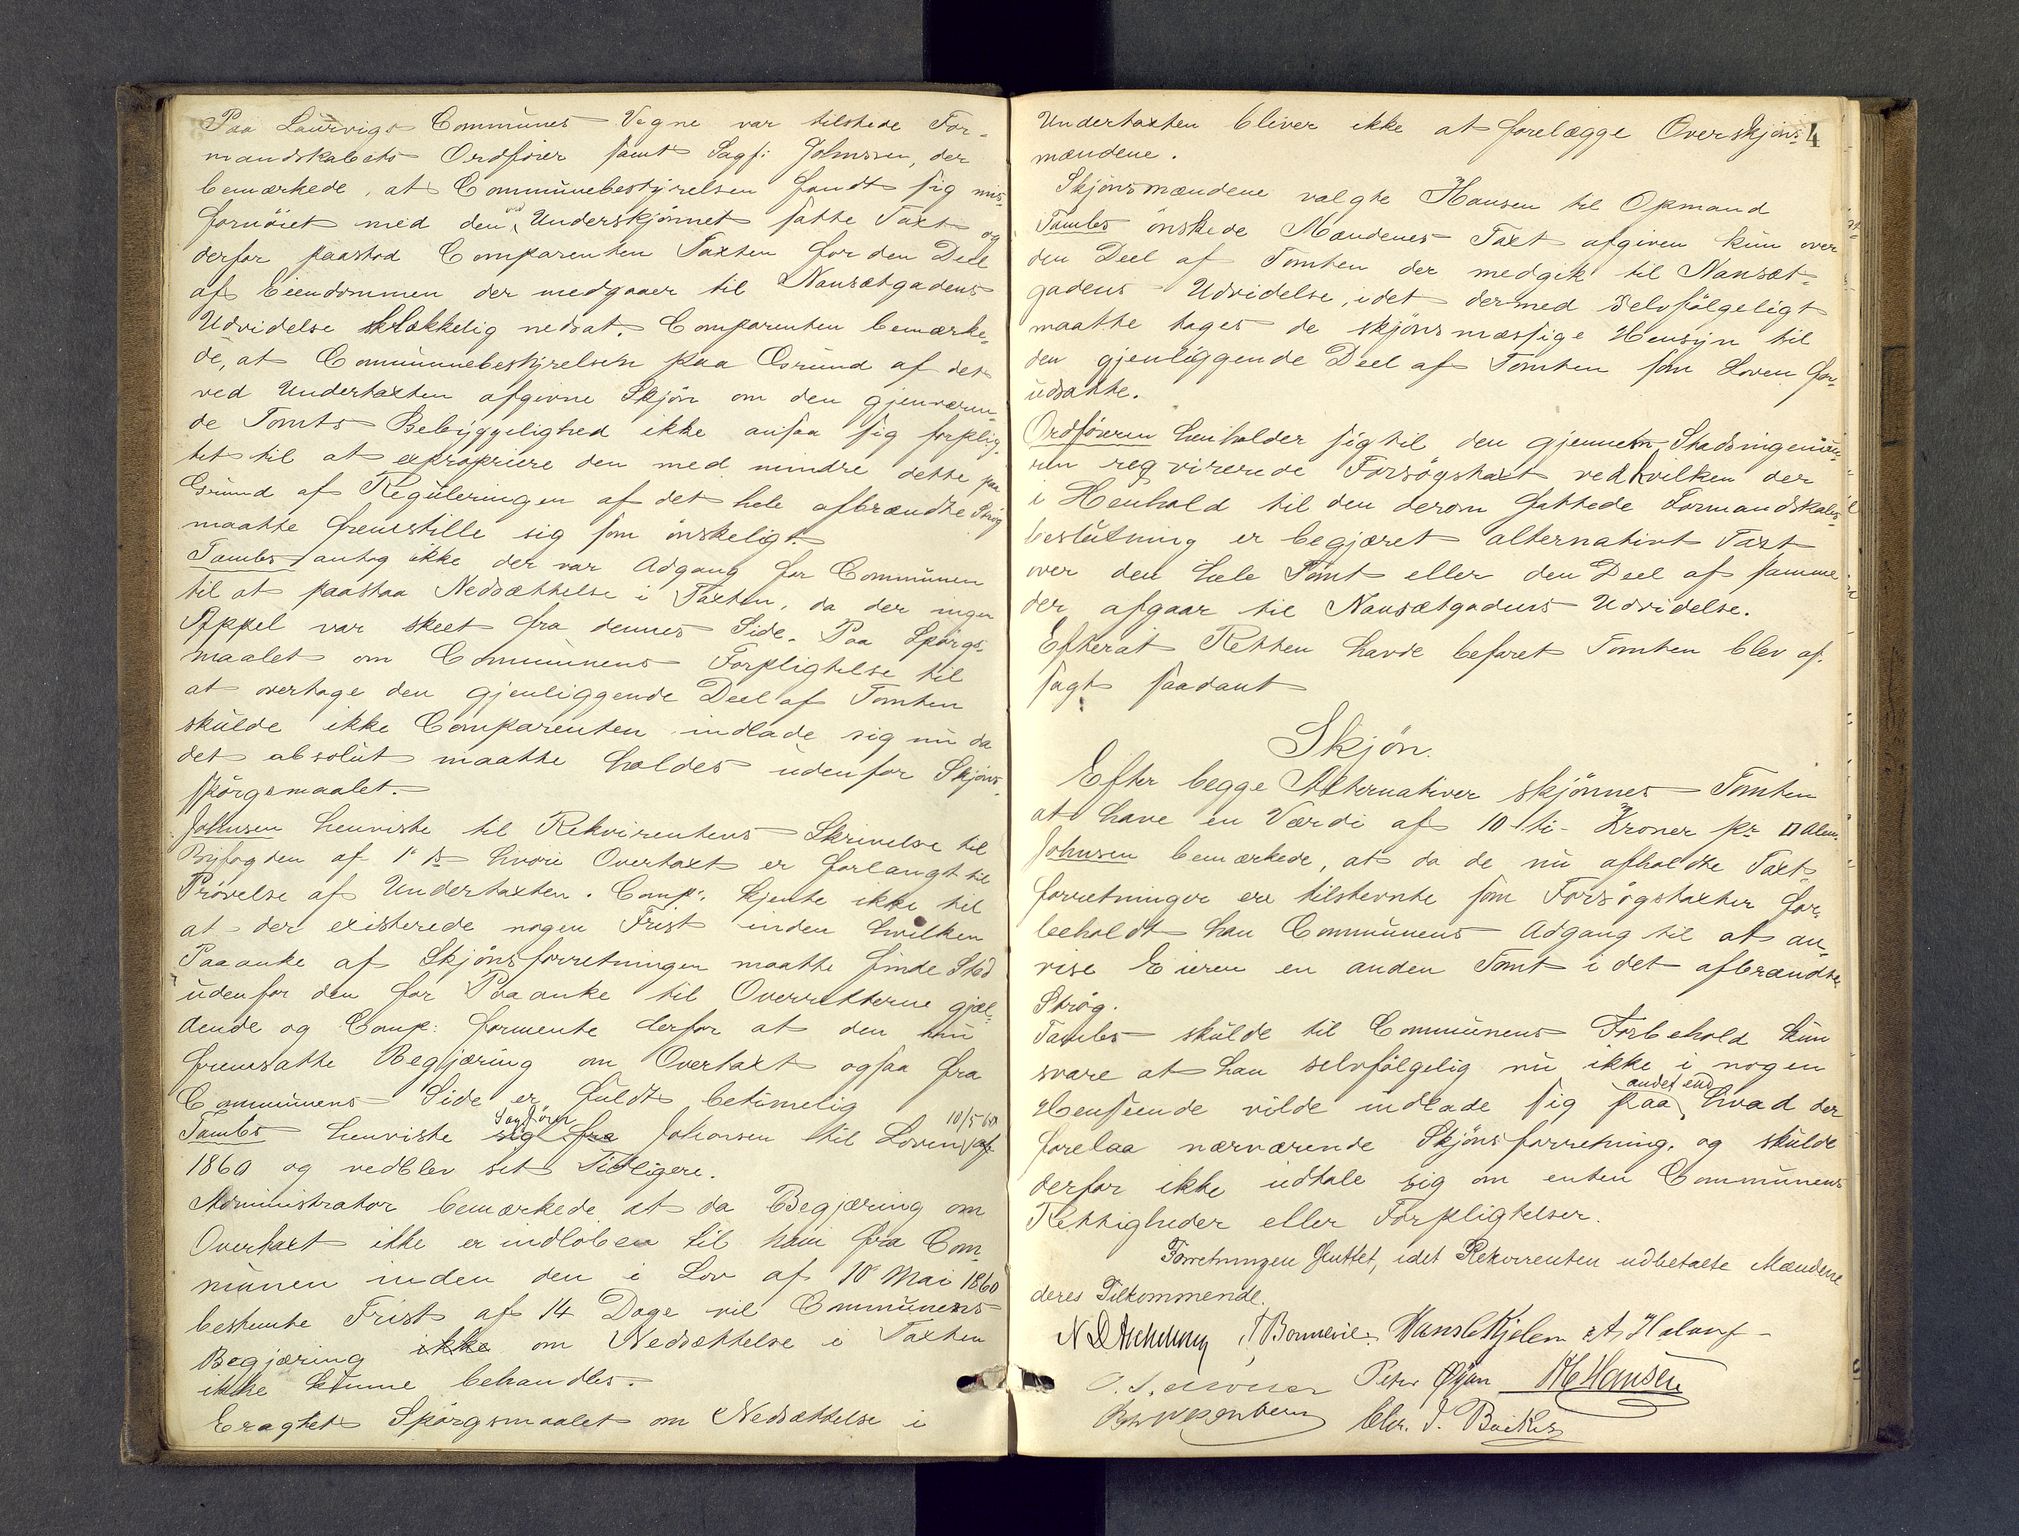 Paa Laurvigs Communes Vegne var tilstede For-
mandskabets Ordfører samt Sagf: Johnsen, der
bemærkede, at Communebestyrelsen fandt sig mis-
fornöiet med den ved Underskjønnet satte Taxt og
derfor paastod Comparenten Taxten for den Deel
af Eiendommen der medgaaer til Nansætgadens
Udvidelse skrækkelig nedsat. Comparenten bemærke-
de, at Communebestyrelsen paa Grund af det
ved Undertaxten afgivne Skjøn om den gjenværen-
de Tomts Bebyggelighed ikke ansaa sig forplig-
tet til at expropriere den med mindre dette paa
Grund af Reguleringen af det hele afbrændte Strøg
maatte fremstille sig som ønskeligt.
Tambs antog ikke der var Adgang for Communen
til at paastaa Nedsættelse i Taxten, da der ingen
Appel var skeet fra dennes Side. Paa Spörgs-
maalet om Communens Forpligtelse til
at overtage den gjenliggende Deel af Tomten
skulde ikke Comparenten indlade sig nu da
det absolut maatte holdes udenfor Skjøns-
spörgsmaalet.
Johnsen henviste til Rekvirentens Skrivelse til
Byfogden af 1ste ds hvori Overtaxt er forlangt til
Prövelse af Undertaxten. Comp: kjente ikke til
at der existerede nogen Frist inden hvilken
Paaanke af Skjønsforretningen maatte finde Sted
udenfor den for Paaanke til Overretterne gjæl-
dende og Comp: formente derfor at den nu
fremsatte Begjæring om Overtaxt ogsaa fra
Communens Side er fuldt betimelig
Tambs henviste sig fra Sagfører Johnsen til Loven af 10/5 60
1860 og vedblev sit Tidligere.
Administrator bemærkede at da Begjæring om
Overtaxt ikke er indløben til ham fra Com-
munen inden den i Lov af 10 Mai 1860
bestemte Frist af 14 Dage vil Communens
Begjæring ikke om Nedsættelse i Taxten
ikke kunne behandles.
Eragtet Spörgsmaalet om Nedsættelse i
4
Undertaxten bliver ikke at forelægge Overskjøns-
mændene.
Skjönsmændene valgte Hansen til Opmand
Tambs ønskede Mændenes Taxt afgiven kun over
den Deel af Tomten der medgik til Nansæt-
gadens Udvidelse, idet dermed selvfölgeligt
maatte tages de skjønsmæssige Hensyn til
den gjenliggende Deel af Tomten som Loven for-
udsatte.
Ordføreren henholder sig til den gjennem Stadsingeniøu-
ren reqvirerede Forsøgstaxt ved hvilken der
i Henhold til den derom fattede Formandskabs-
beslutning er begjæret alternativt Taxt
over den hele Tomt eller den Deel af samme
der afgaar til Nansætgadens Udvidelse.
Efterat Retten havde befaret Tomten blev af-
sagt saadant
Skjøn.
Efter begge Alternativer skjönnes Tomten
at have en Værdi af 10 ti Kroner pr □ Alen.
Johnsen bemærkede, at da de nu afholdte Taxt-
forretninger ere tilstevnte som Forsøgstaxter for-
beholdt han Communens Adgang til at an-
vise Eieren en anden Tomt i det afbrændte
Strøg.
Tambs skulde til Communens Forbehold kun
svare at han selvfölgelig nu ikke i nogen
Henseende vilde indlade sig paa andet end hvad der
forelaa nærværende Skjönsforretning, og skulde
derfor ikke udtale sig om enten Communens
Rettigheder eller Forpligtelser.
Forretningen sluttet, idet Rekvirenten udbetalte Mændene
deres Tilkommende.
Hans Kjelsen
Peter Øyen H Hansen
Chr. J. Backer